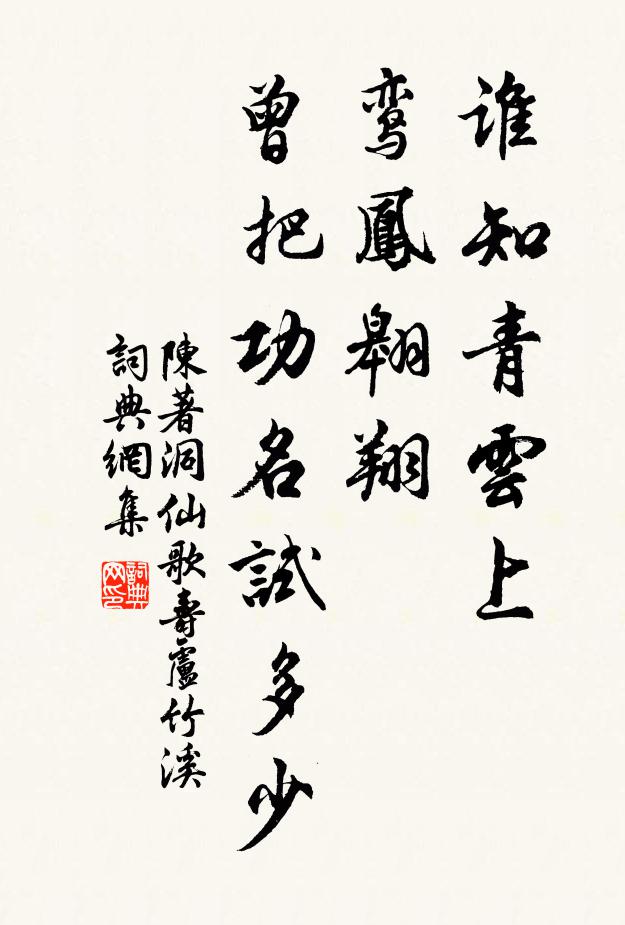 誰知青雲上
鸾鳳翱翔
曾把功名試多少
陳著洞仙歌壽盧竹溪
詞典網集
詞典网印